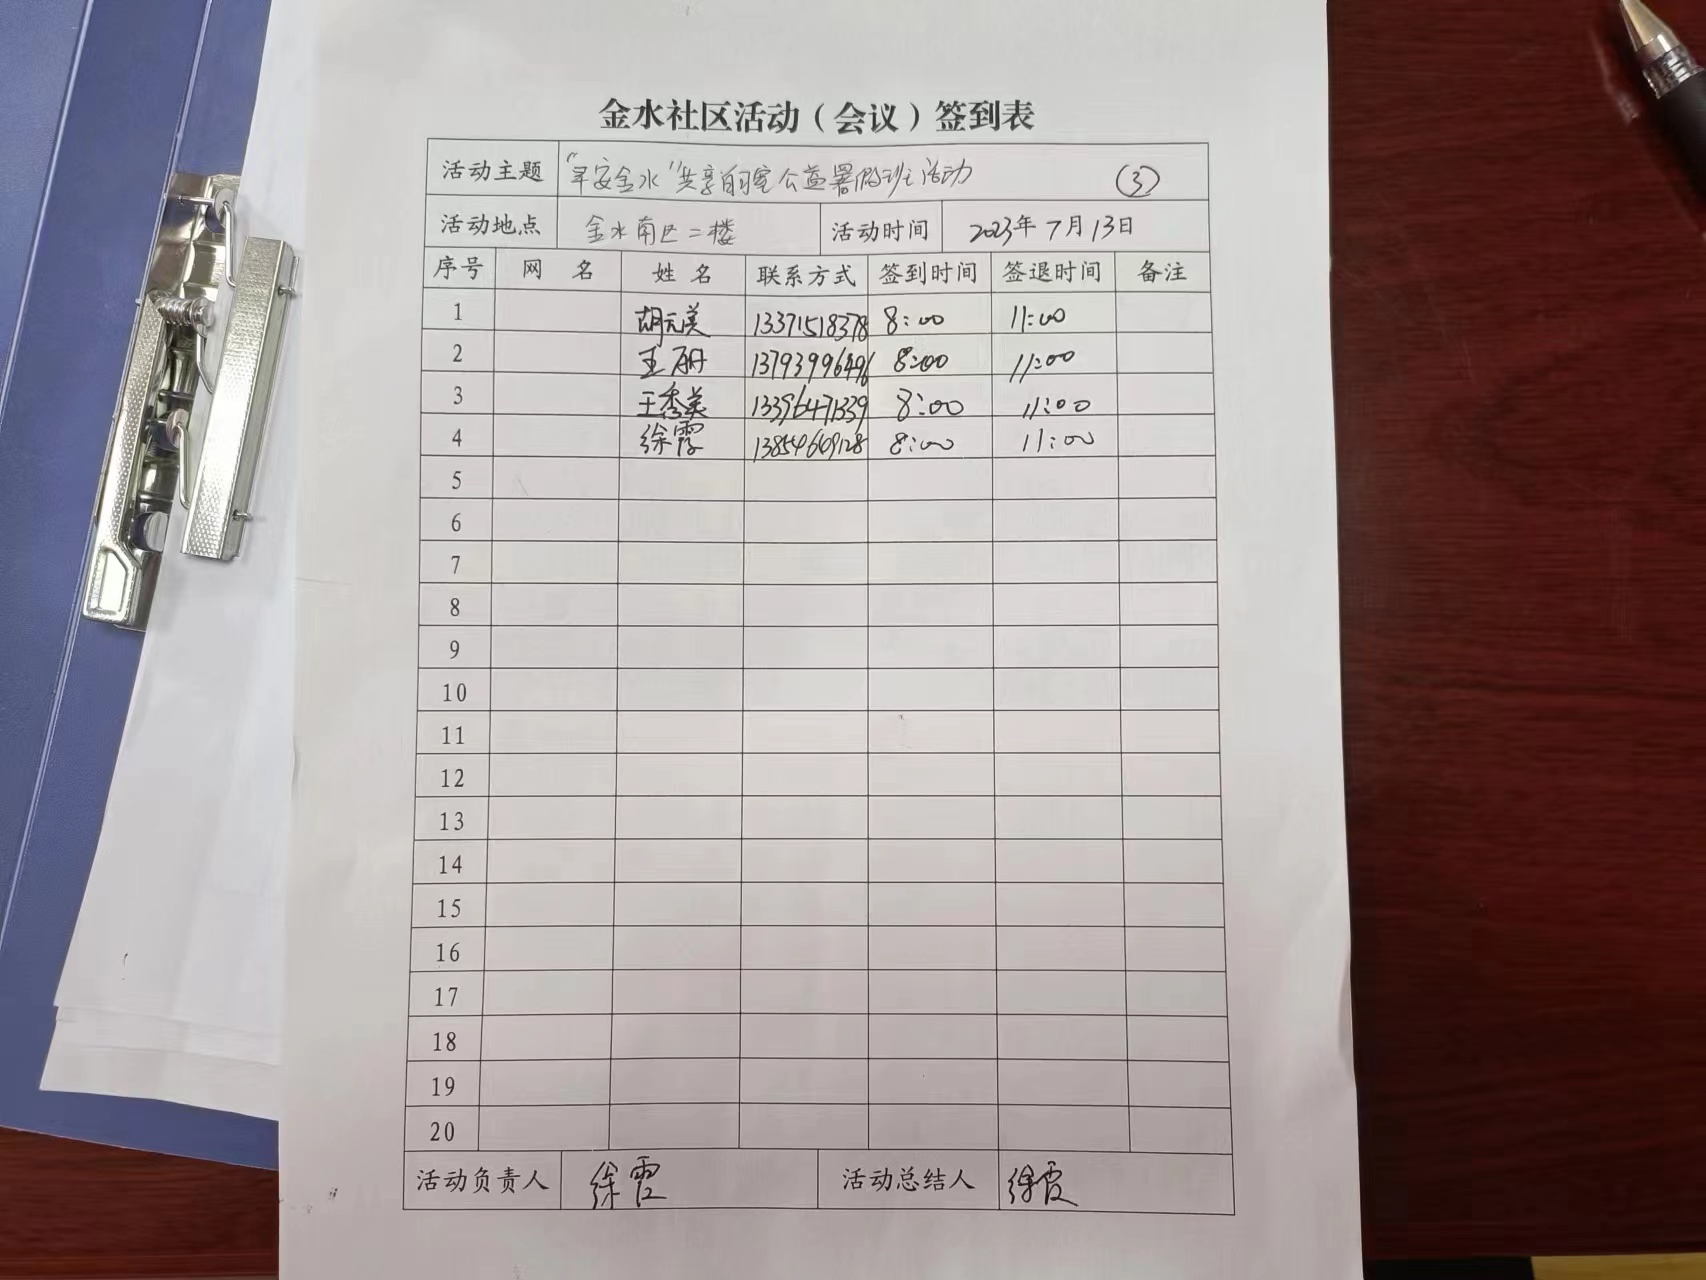 金水社区活动（会议）签到表
活动主题 "早安金水"共享自习室公益暑假班活动 ③
活动地点 金水南区二楼 活动时间 2023年7月13日
序号 网 名 姓 名 联系方式 签到时间 签退时间 备注
1 胡元美 13371518378 8:00 11:00
2 王丽 13793996496 8:00 11:00
3 王秀美 13396471339 8:00 11:00
4 徐霞 13854669128 8:00 11:00
5
6
7
8
9
10
11
12
13
14
15
16
17
18
19
20
活动负责人 徐霞 活动总结人 徐霞